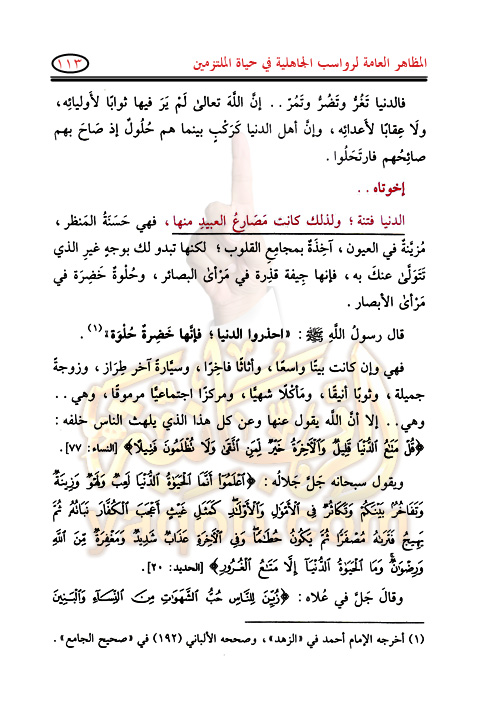 المظاهر العامة لرواسب الجاهلية في حياة الملتزمين ١١٣
فالدنيا تَغُرُّ وتَضُرُّ وتَمُرّ .. إنَّ اللَّهَ تعالىٰ لَمْ يَرَ فيها ثوابًا لأَوليائِه،
ولَا عِقابًا لأَعدائِه، وإنَّ أهل الدنيا كَرَكْبٍ بينما هم حُلُولٌ إذ صَاحَ بهم
صائِحُهم فارتَحَلُوا .
إخوتاه ..
الدنيا فتنة ؛ ولذلك كانت مَصَارِعُ العبيدِ منها، فهي حَسَنَةُ المَنظر،
مُزيَّنةٌ في العيون، آخِذَةٌ بمجامعِ القلوب ؛ لكنها تبدو لك بوجهٍ غيرِ الذي
تَتَوَلَّىٰ عنكَ به، فإنها جِيفة قذِرة في مَرْأىٰ البصائر، وحُلْوةٌ خَضِرَة في
مَرْأىٰ الأبصار .
قال رسولُ اللَّهِ ﷺ : «احذروا الدنيا ؛ فإنَّها خَضِرةٌ حُلْوَة»(١) .
فهي وإن كانت بيتًا واسعًا، وأثاثًا فاخِرًا، وسيَّارةً آخر طِرَاز، وزوجةً
جميلة، وثوبًا أنيقًا، ومأكَلًا شهيًّا، ومركزًا اجتماعيًّا مرموقًا، وهي ..
وهي .. إلا أنَّ اللَّه يقول عنها وعن كل هذا الذي يلهث الناس خلفه :
﴿قُلْ مَتَاعُ الدُّنْيَا قَلِيلٌ وَالْآخِرَةُ خَيْرٌ لِمَنِ اتَّقَىٰ وَلَا تُظْلَمُونَ فَتِيلًا﴾ [النساء: ٧٧].
ويقول سبحانه جَلَّ جلالُه : ﴿اعْلَمُوا أَنَّمَا الْحَيَوٰةُ الدُّنْيَا لَعِبٌ وَلَهْوٌ وَزِينَةٌ
وَتَفَاخُرٌ بَيْنَكُمْ وَتَكَاثُرٌ فِي الْأَمْوَٰلِ وَالْأَوْلَٰدِ كَمَثَلِ غَيْثٍ أَعْجَبَ الْكُفَّارَ نَبَاتُهُ ثُمَّ
يَهِيجُ فَتَرَىٰهُ مُصْفَرًّا ثُمَّ يَكُونُ حُطَٰمًا وَفِي الْآخِرَةِ عَذَابٌ شَدِيدٌ وَمَغْفِرَةٌ مِّنَ اللَّهِ
وَرِضْوَٰنٌ وَمَا الْحَيَوٰةُ الدُّنْيَا إِلَّا مَتَٰعُ الْغُرُورِ﴾ [الحديد: ٢٠].
وقالَ جَلَّ في عُلاه : ﴿زُيِّنَ لِلنَّاسِ حُبُّ الشَّهَوَاتِ مِنَ النِّسَاءِ وَالْبَنِينَ
(١) أخرجه الإمام أحمد في «الزهد»، وصححه الألباني (١٩٢) في «صحيح الجامع» .